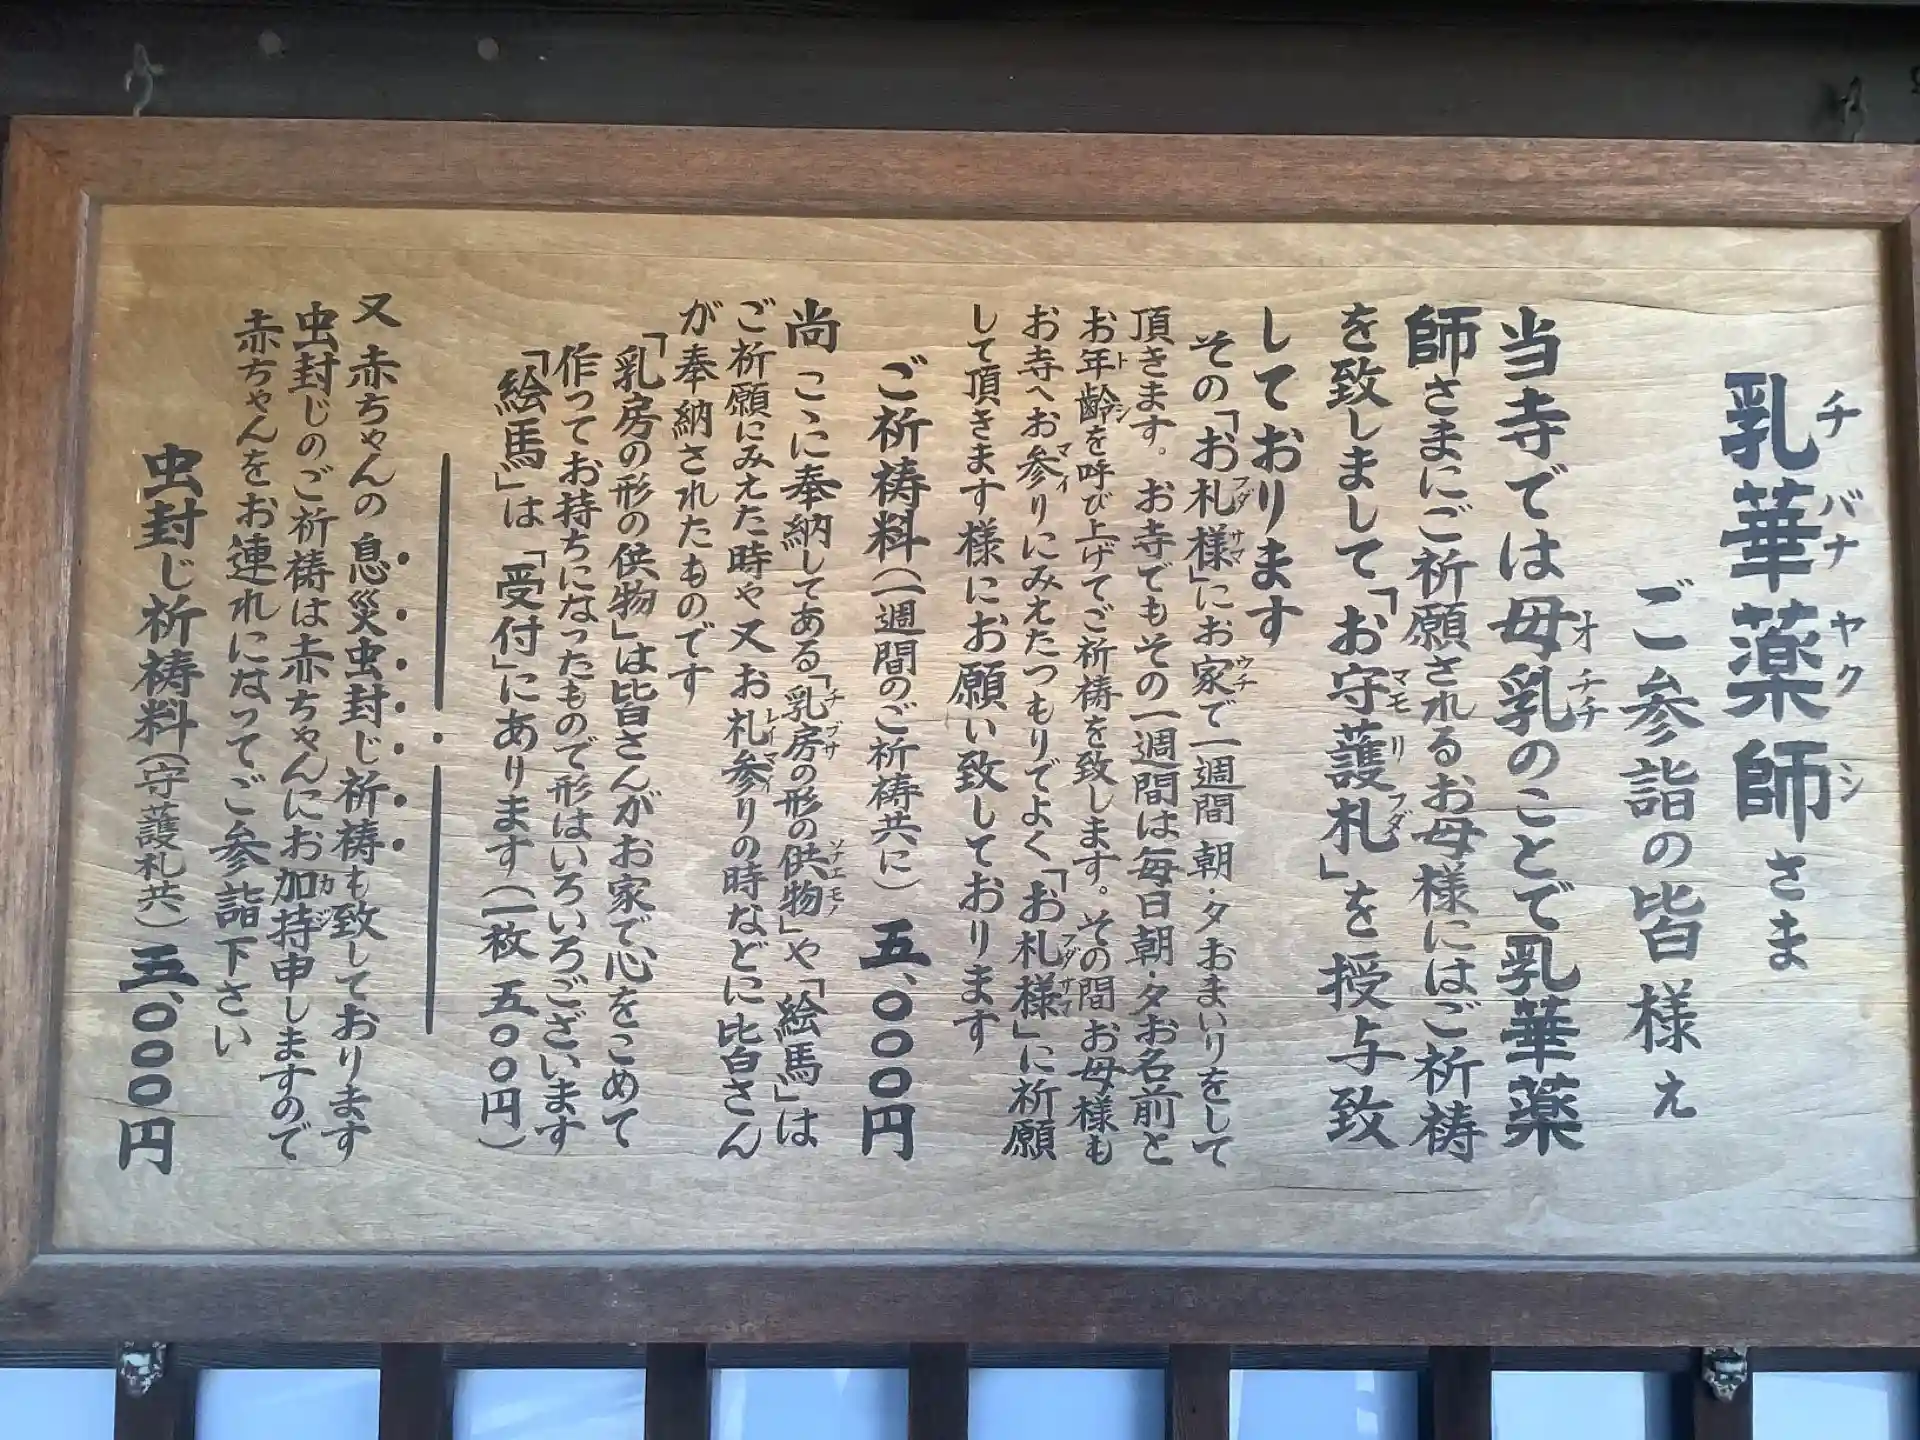 乳華薬師さま
チバナヤクシ
ご参詣の皆様え
当寺では母乳のことで乳華薬
オチチ
師さまにご祈願されるお母様にはご祈祷
を致しまして「お守護札」を授与致
マモリフダ
しております
その「お札様」にお家で一週間朝・夕おまいりをして
フダサマ
ウチ
頂きます。お寺でもその一週間は毎日朝・夕お名前と
お年齢を呼び上げてご祈祷を致します。その間お母様も
トシ
お寺へお参りにみえたつもりでよく「お札様」に祈願
マイ
フダサマ
して頂きます様にお願い致しております
ご祈祷料(一週間のご祈祷共に)五、〇〇〇円
尚ここに奉納してある「乳房の形の供物」や「絵馬」は
チブサ
ソナエモノ
ご祈願にみえた時や又お札参りの時などに皆さん
レイマイ
が奉納されたものです
「乳房の形の供物」は皆さんがお家で心をこめて
作ってお持ちになったもので形はいろいろございます
「絵馬」は「受付」にあります(一枚 五〇〇円)
又赤ちゃんの息災虫封じ祈祷も致しております
虫封じのご祈祷は赤ちゃんにお加持申しますので
カジ
赤ちゃんをお連れになってご参詣下さい
虫封じ祈祷料(守護札共)五、〇〇〇円